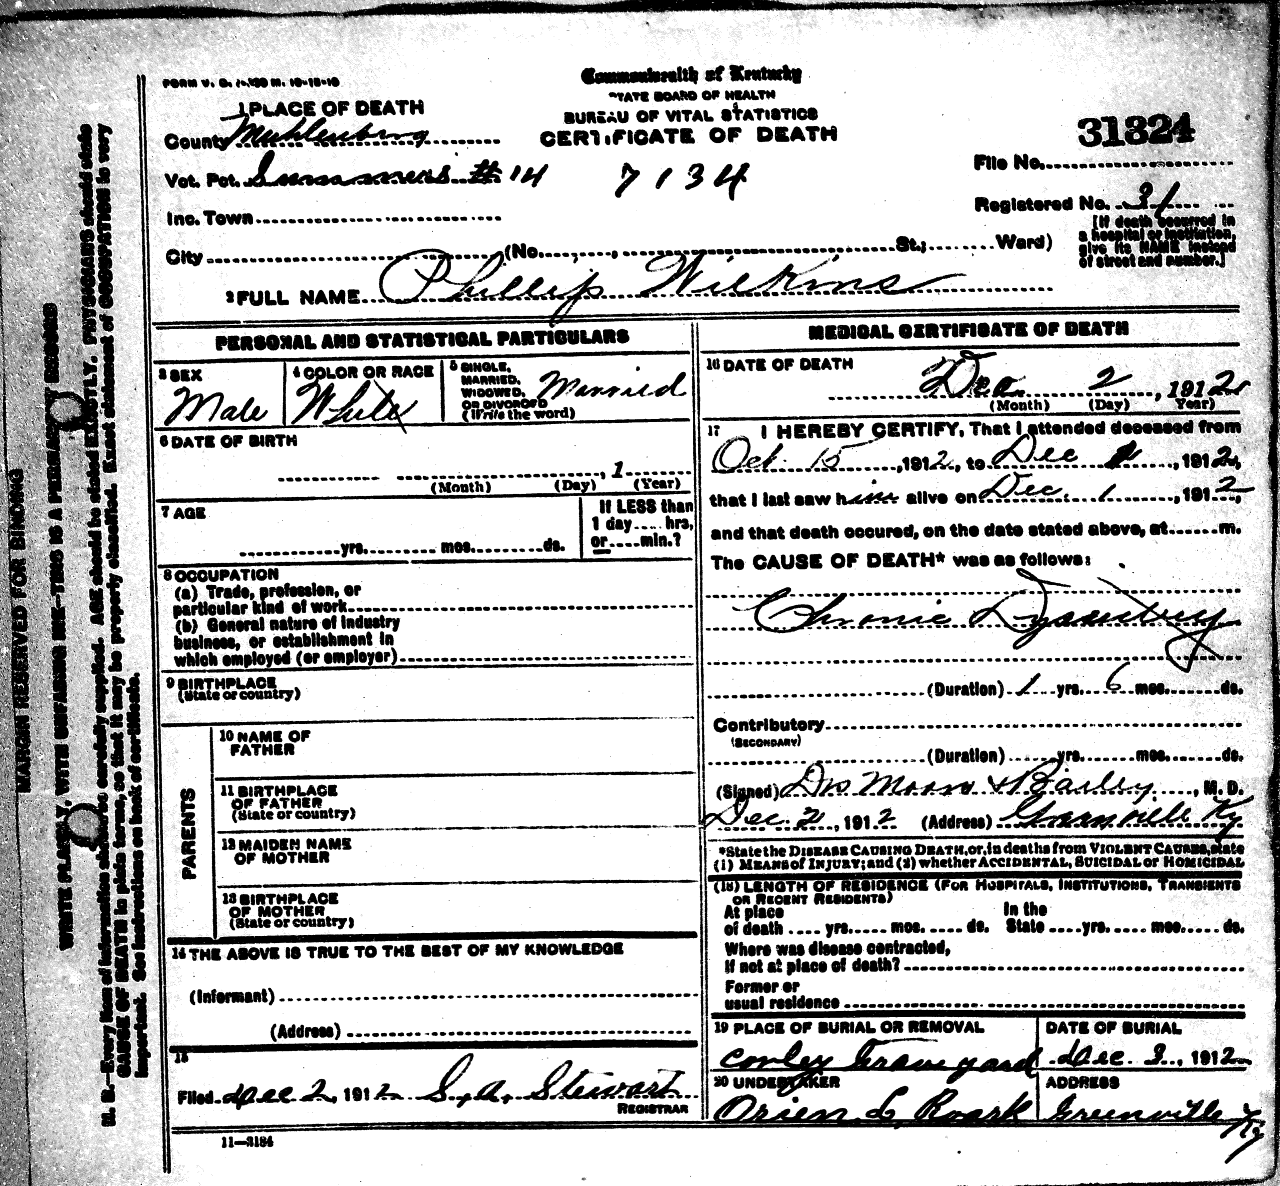 FORM V. S. 1-130 M. 10-13-10
Commonwealth of Kentucky
STATE BOARD OF HEALTH
BUREAU OF VITAL STATISTICS
CERTIFICATE OF DEATH
1 PLACE OF DEATH
County Muhlenberg
Vot. Pct. Summers # 14 7134
Inc. Town
City (No. , St.; Ward)
31324
File No.
Registered No. 31
[If death occurred in
a hospital or institution,
give its NAME instead
of street and number.]
2 FULL NAME Phillip Wilkins
PERSONAL AND STATISTICAL PARTICULARS
3 SEX
Male
4 COLOR OR RACE
White
5 SINGLE,
MARRIED,
WIDOWED,
OR DIVORCED
(Write the word)
Married
6 DATE OF BIRTH
, 1
(Month) (Day) (Year)
7 AGE
yrs. mos. ds.
If LESS than
1 day .... hrs,
or .... min.?
8 OCCUPATION
(a) Trade, profession, or
particular kind of work
(b) General nature of industry
business, or establishment in
which employed (or employer)
9 BIRTHPLACE
(State or country)
PARENTS
10 NAME OF
FATHER
11 BIRTHPLACE
OF FATHER
(State or country)
12 MAIDEN NAME
OF MOTHER
13 BIRTHPLACE
OF MOTHER
(State or country)
14 THE ABOVE IS TRUE TO THE BEST OF MY KNOWLEDGE
(Informant)
(Address)
15
Filed Dec 2, 1912 S. A. Stewart
REGISTRAR
11—3184
MEDICAL CERTIFICATE OF DEATH
16 DATE OF DEATH
Dec 2, 1912
(Month) (Day) (Year)
17 I HEREBY CERTIFY, That I attended deceased from
Oct. 15, 1912, to Dec 2, 1912,
that I last saw him alive on Dec. 1, 1912,
and that death occured, on the date stated above, at m.
The CAUSE OF DEATH* was as follows:
Chronic Dysentery
(Duration) 1 yrs. 6 mos. ds.
Contributory
(SECONDARY)
(Duration) yrs. mos. ds.
(Signed) Drs Moore & Bailey, M. D.
Dec. 2, 1912 (Address) Greenville Ky
*State the DISEASE CAUSING DEATH, or, in deaths from VIOLENT CAUSES, state
(1) MEANS OF INJURY; and (2) whether ACCIDENTAL, SUICIDAL or HOMICIDAL
(18) LENGTH OF RESIDENCE (FOR HOSPITALS, INSTITUTIONS, TRANSIENTS
OR RECENT RESIDENTS)
At place In the
of death .... yrs. mos. ds. State .... yrs. .... mos. ds.
Where was disease contracted,
If not at place of death?
Former or
usual residence
19 PLACE OF BURIAL OR REMOVAL
Conley Graveyard
DATE OF BURIAL
Dec. 3, 1912
20 UNDERTAKER
Orien L. Roark
ADDRESS
Greenville Ky
MARGIN RESERVED FOR BINDING
WRITE PLAINLY, WITH UNFADING INK—THIS IS A PERMANENT RECORD
N. B.—Every item of information should be carefully supplied. AGE should be stated EXACTLY. PHYSICIANS should state
CAUSE OF DEATH in plain terms, so that it may be properly classified. Exact statement of OCCUPATION is very
important. See instructions on back of certificate.